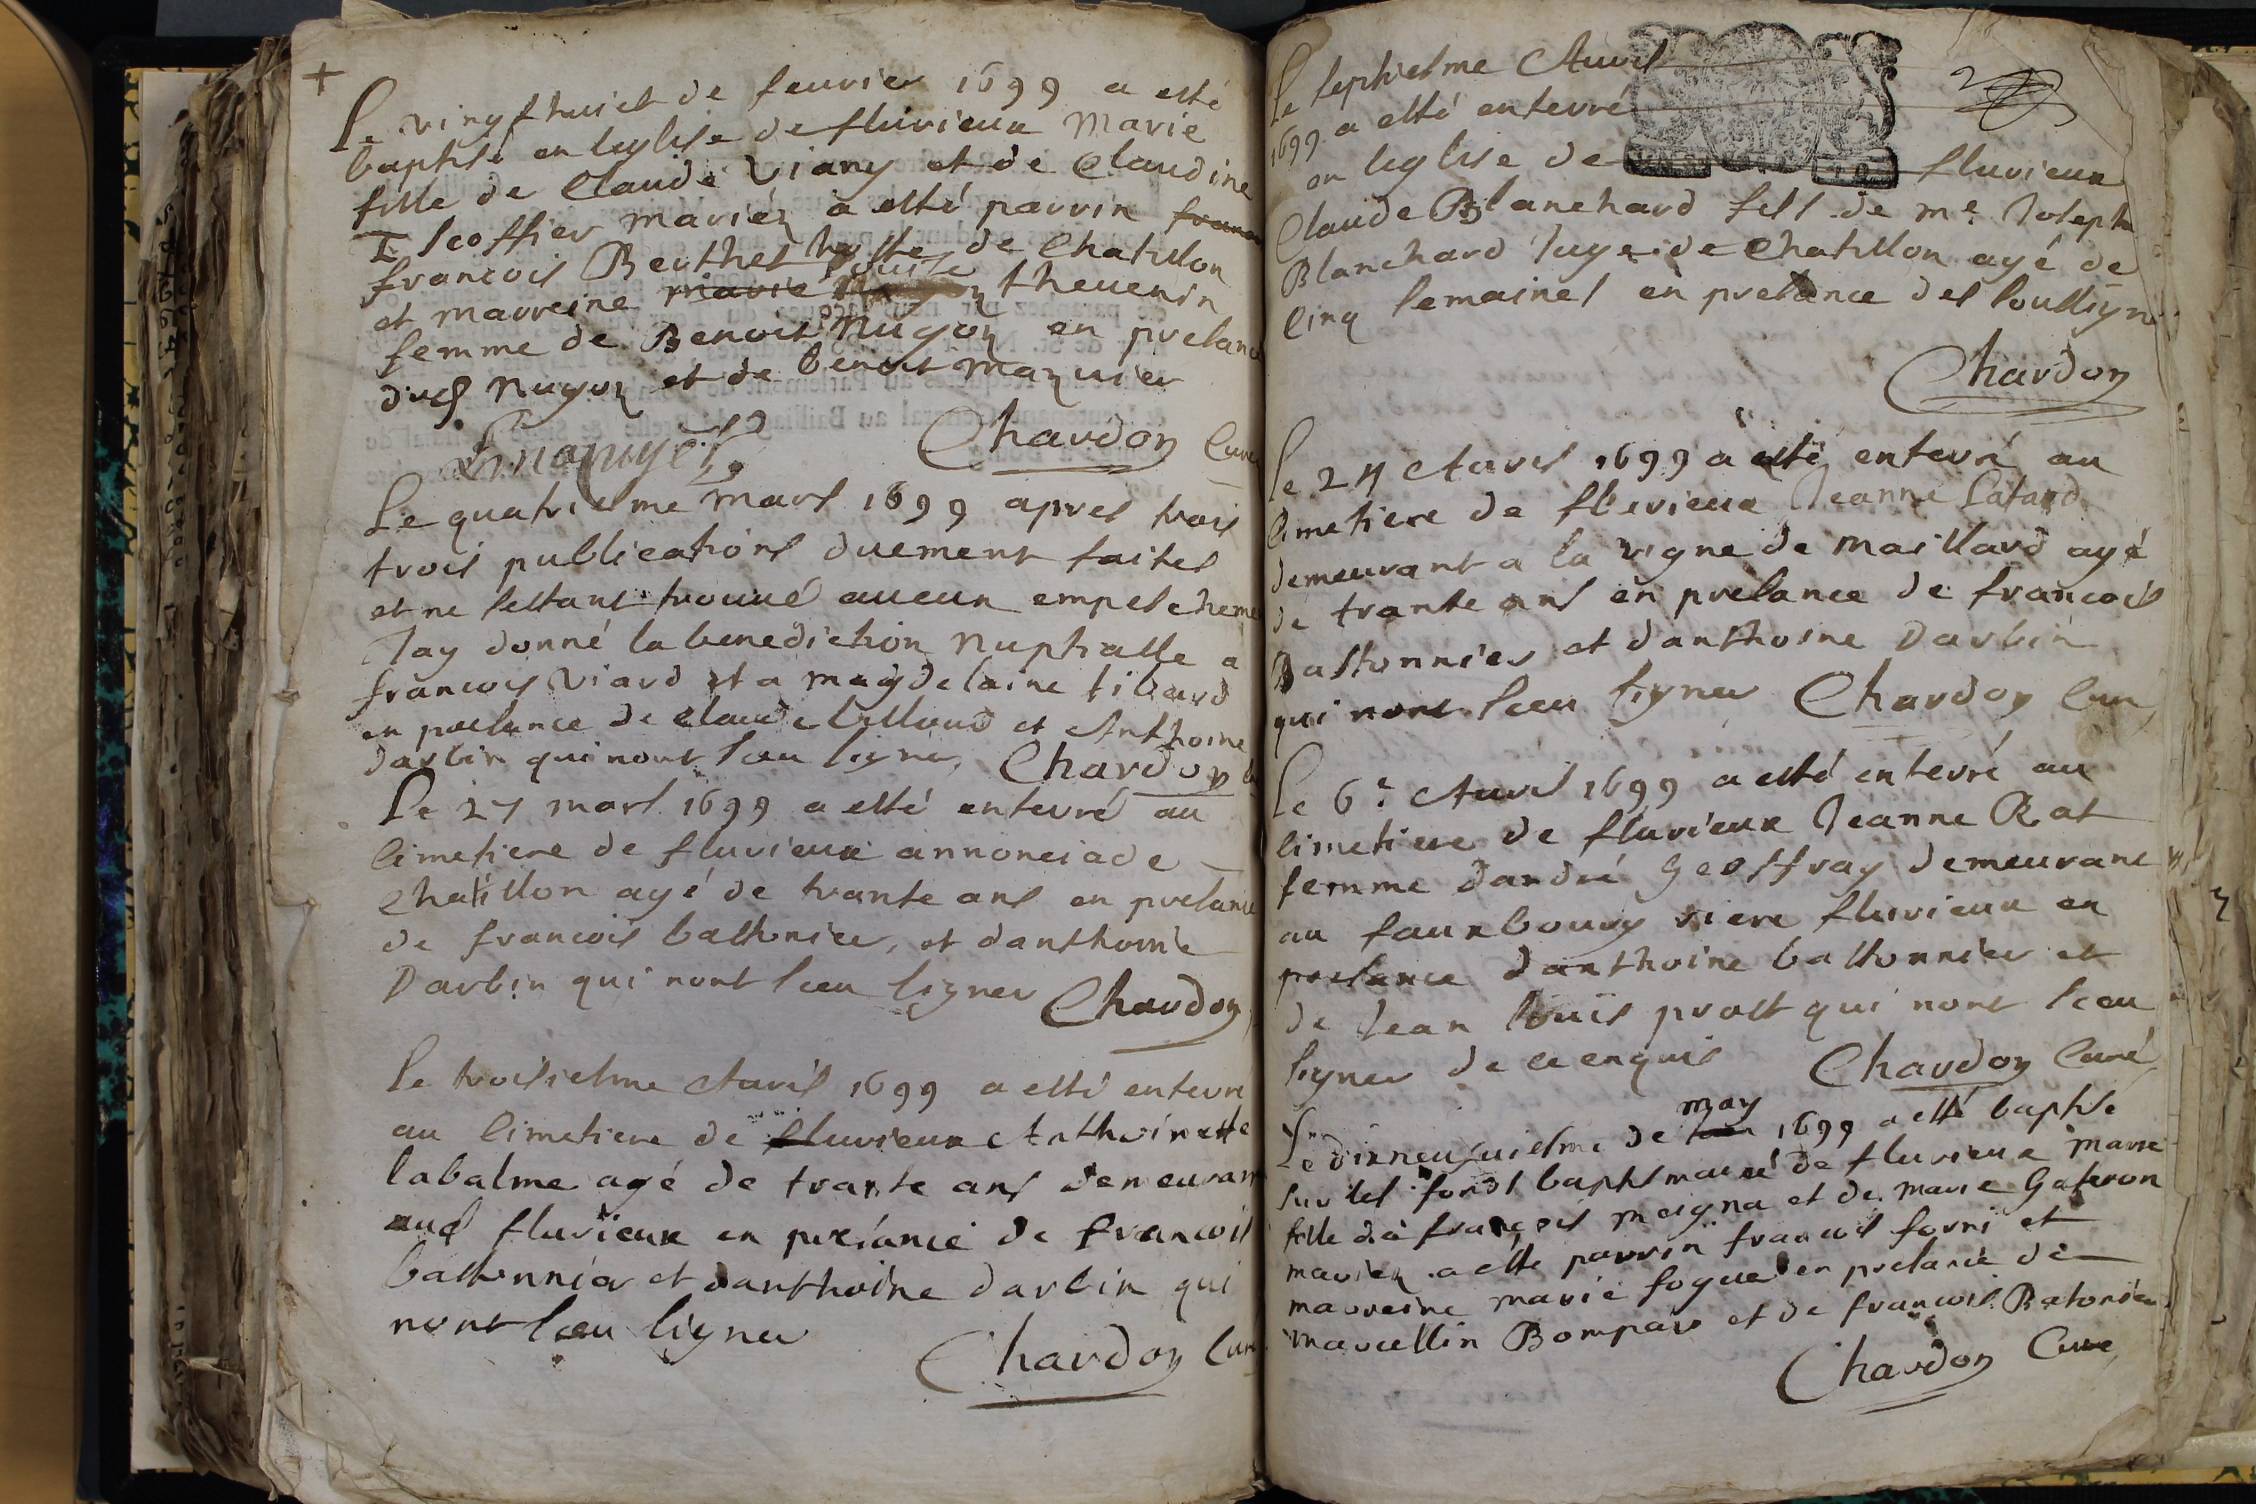 +
Le vingthuict de feuvier 1699 a esté
baptisé en leglise de fluvieux Marie
fille de Claude Viany et de Claudine
Escoffier mariéz a esté parrin
francois Berthet hoste de Chatillon
et marreine Louise thevenin
femme de Benoist Nugon en presance
dud Nugon et de benoit mazuier
Chardon Curé
Le quatriesme mars 1699 apres trois
trois publications duement faites
et ne sestant trouué aucun empeschement
Jay donné la benediction Nuptialle a
francois Viard et a magdelaine tibard
en presence de claude et Anthoine
darbin qui nont sceu signer Chardon
Le 27 mars 1699 a esté enterré au
cimetiere de fluvieux annonciade
Chatillon agé de trante ans en presance
de francois bastonier, et danthoine
Darbin qui nont sceu signer Chardon
Le troisiesme Avril 1699 a esté enterré
au cimetiere de fluvieux Anthoinette
labalme agé de trante ans demeurant
aud fluvieux en presance de francois
bastonnier et danthoine darbin qui
nont sceu signer
Chardon Curé
Le septiesme Auvil
1699 a esté enterré
en leglise de fluvieux
Claude Blanchard fils de me Joseph
Blanchard Juge de Chatillon agé de
cinq semaines en presance des soussigné
Chardon
Le 24 Avril 1699 a esté enterré au
Cimetiere de fluvieux Jeanne
demeurant a la vigne de maillard agé
de trante ans en presance de francois
Bastonnier et danthoine Darbin
qui nont sceu signer Chardon Curé
Le 6e Auvil 1699 a esté enterré au
cimetiere de fluvieux Jeanne Rat
femme dandré Geoffray demeurant
au fauxbourg riere fluvieux en
presance danthoine bastonnier et
de Jean louis prost qui nont sceu
signer de ce enquis Chardon Curé
may
Le dixneufuiesme de 1699 a esté baptise
sur les fonds baptismaux de fluvieux Marie
fille di a françois meigna et de marie Gateron
mariez a esté parrin francois forni et
marreine marie foques en presance de
marcellin Bompar et de francois Batonier
Chardon Curé